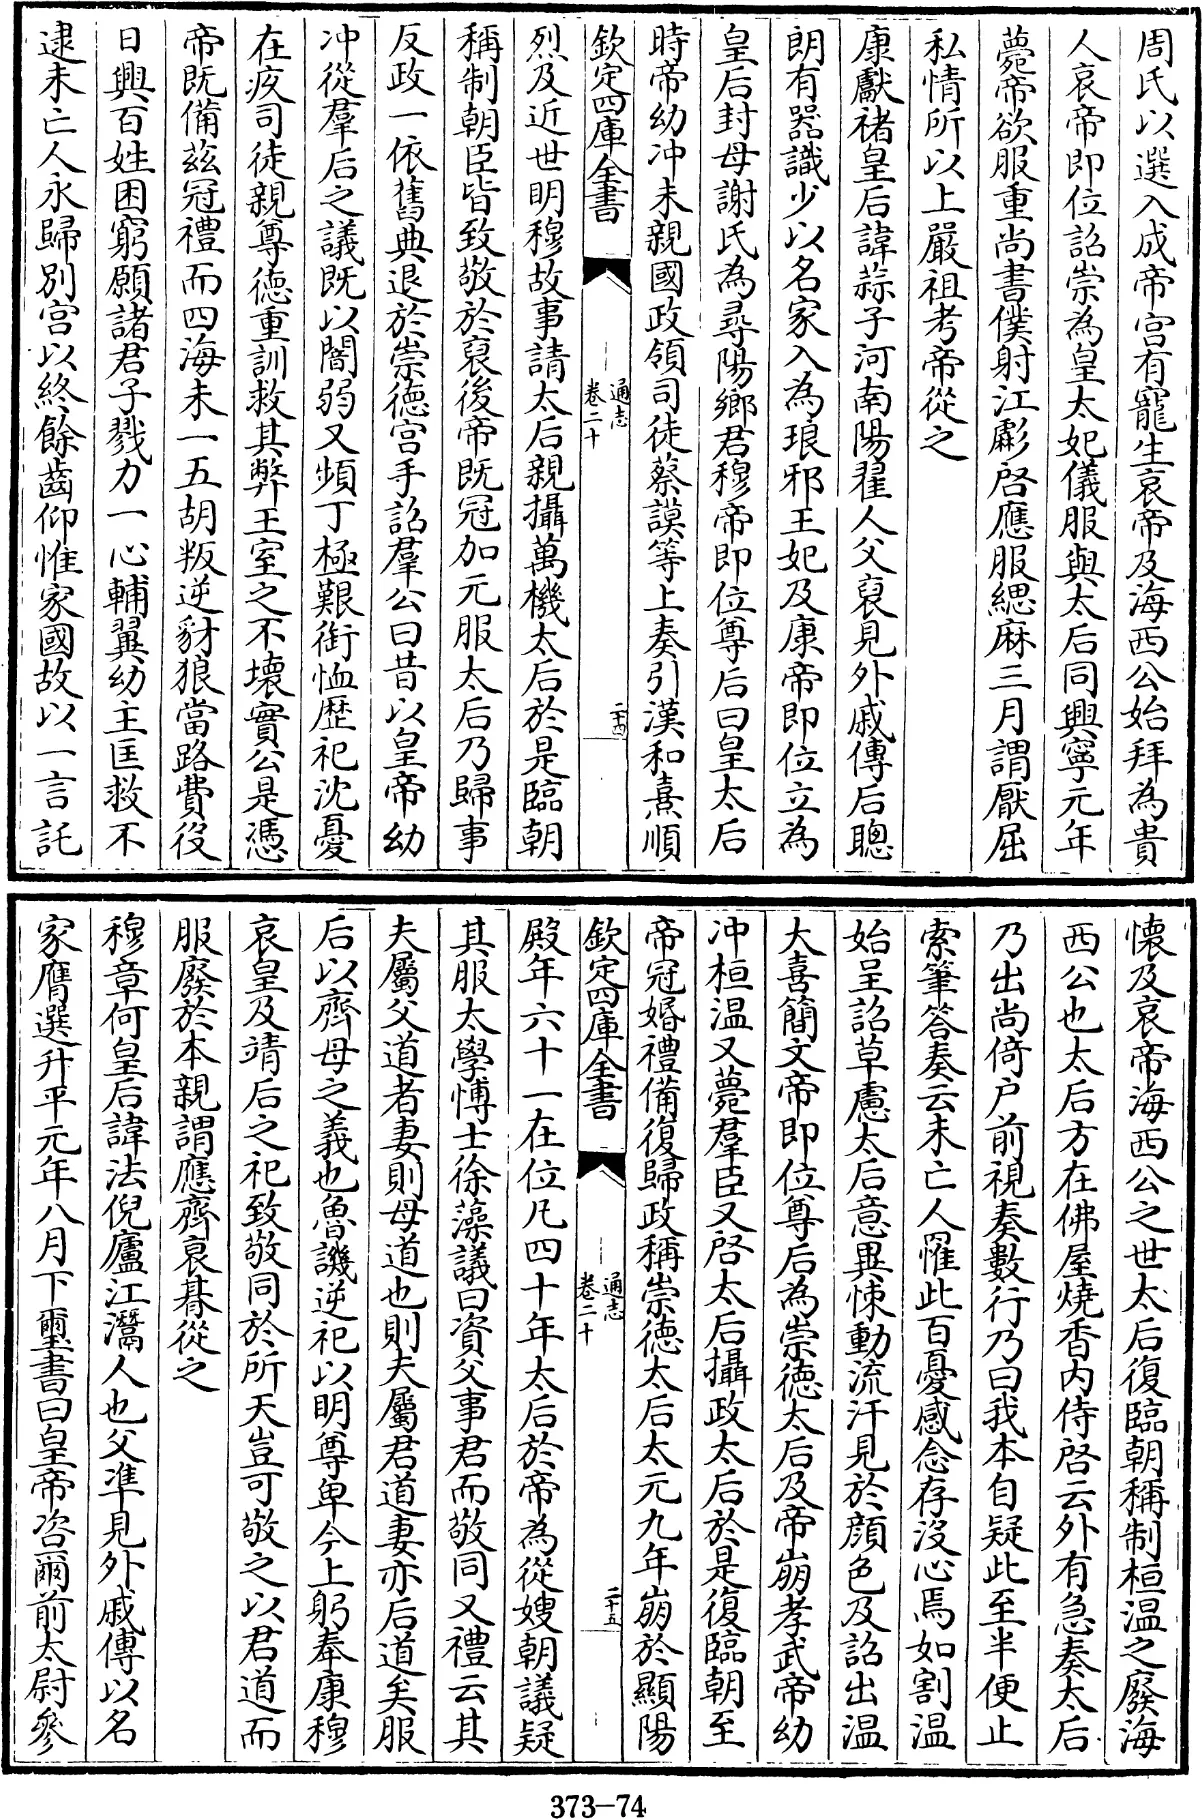 周氏以選入成帝宫有寵生哀帝及海西公始拜為貴
人哀帝即位詔崇為皇太妃儀服與太后同興寧元年
薨帝欲服重尚書僕射江虨啓應服緦麻三月謂厭屈
私情所以上嚴祖考帝從之
康獻褚皇后諱蒜子河南陽翟人父裒見外戚傳后聰
朗有器識少以名家入為琅邪王妃及康帝即位立為
皇后封母謝氏為尋陽鄉君穆帝即位尊后曰皇太后
時帝幼冲未親國政領司徒蔡謨等上奏引漢和熹順
欽定四庫全書
通志
卷二十
二十四
烈及近世明穆故事請太后親攝萬機太后於是臨朝
稱制朝臣皆致敬於裒後帝既冠加元服太后乃歸事
反政一依舊典退於崇德宫手詔羣公曰昔以皇帝幼
冲從羣后之議既以闇弱又頻丁極艱銜恤歴祀沈憂
在疚司徒親尊德重訓救其弊王室之不壞實公是憑
帝既備茲冠禮而四海未一五胡叛逆豺狼當路費役
日興百姓困窮願諸君子戮力一心輔翼幼主匡救不
逮未亡人永歸別宫以終餘齒仰惟家國故以一言託
懐及哀帝海西公之世太后復臨朝稱制桓温之廢海
西公也太后方在佛屋燒香内侍啓云外有急奏太后
乃出尚倚户前視奏數行乃曰我本自疑此至半便止
索筆答奏云未亡人罹此百憂感念存沒心焉如割温
始呈詔草慮太后意異悚動流汗見於顔色及詔出温
大喜簡文帝即位尊后為崇德太后及帝崩孝武帝幼
冲桓温又薨羣臣又啓太后攝政太后於是復臨朝至
帝冠婚禮備復歸政稱崇德太后太元九年崩於顯陽
欽定四庫全書
通志
卷二十
二十五
殿年六十一在位凡四十年太后於帝為從嫂朝議疑
其服太學博士徐藻議曰資父事君而敬同又禮云其
夫屬父道者妻則母道也則夫屬君道妻亦后道矣服
后以齊母之義也魯譏逆祀以明尊卑今上躬奉康穆
哀皇及靖后之祀致敬同於所天豈可敬之以君道而
服廢於本親謂應齊裒朞從之
穆章何皇后諱法倪廬江灊人也父準見外戚傳以名
家膺選升平元年八月下璽書曰皇帝咨爾前太尉參
373-74